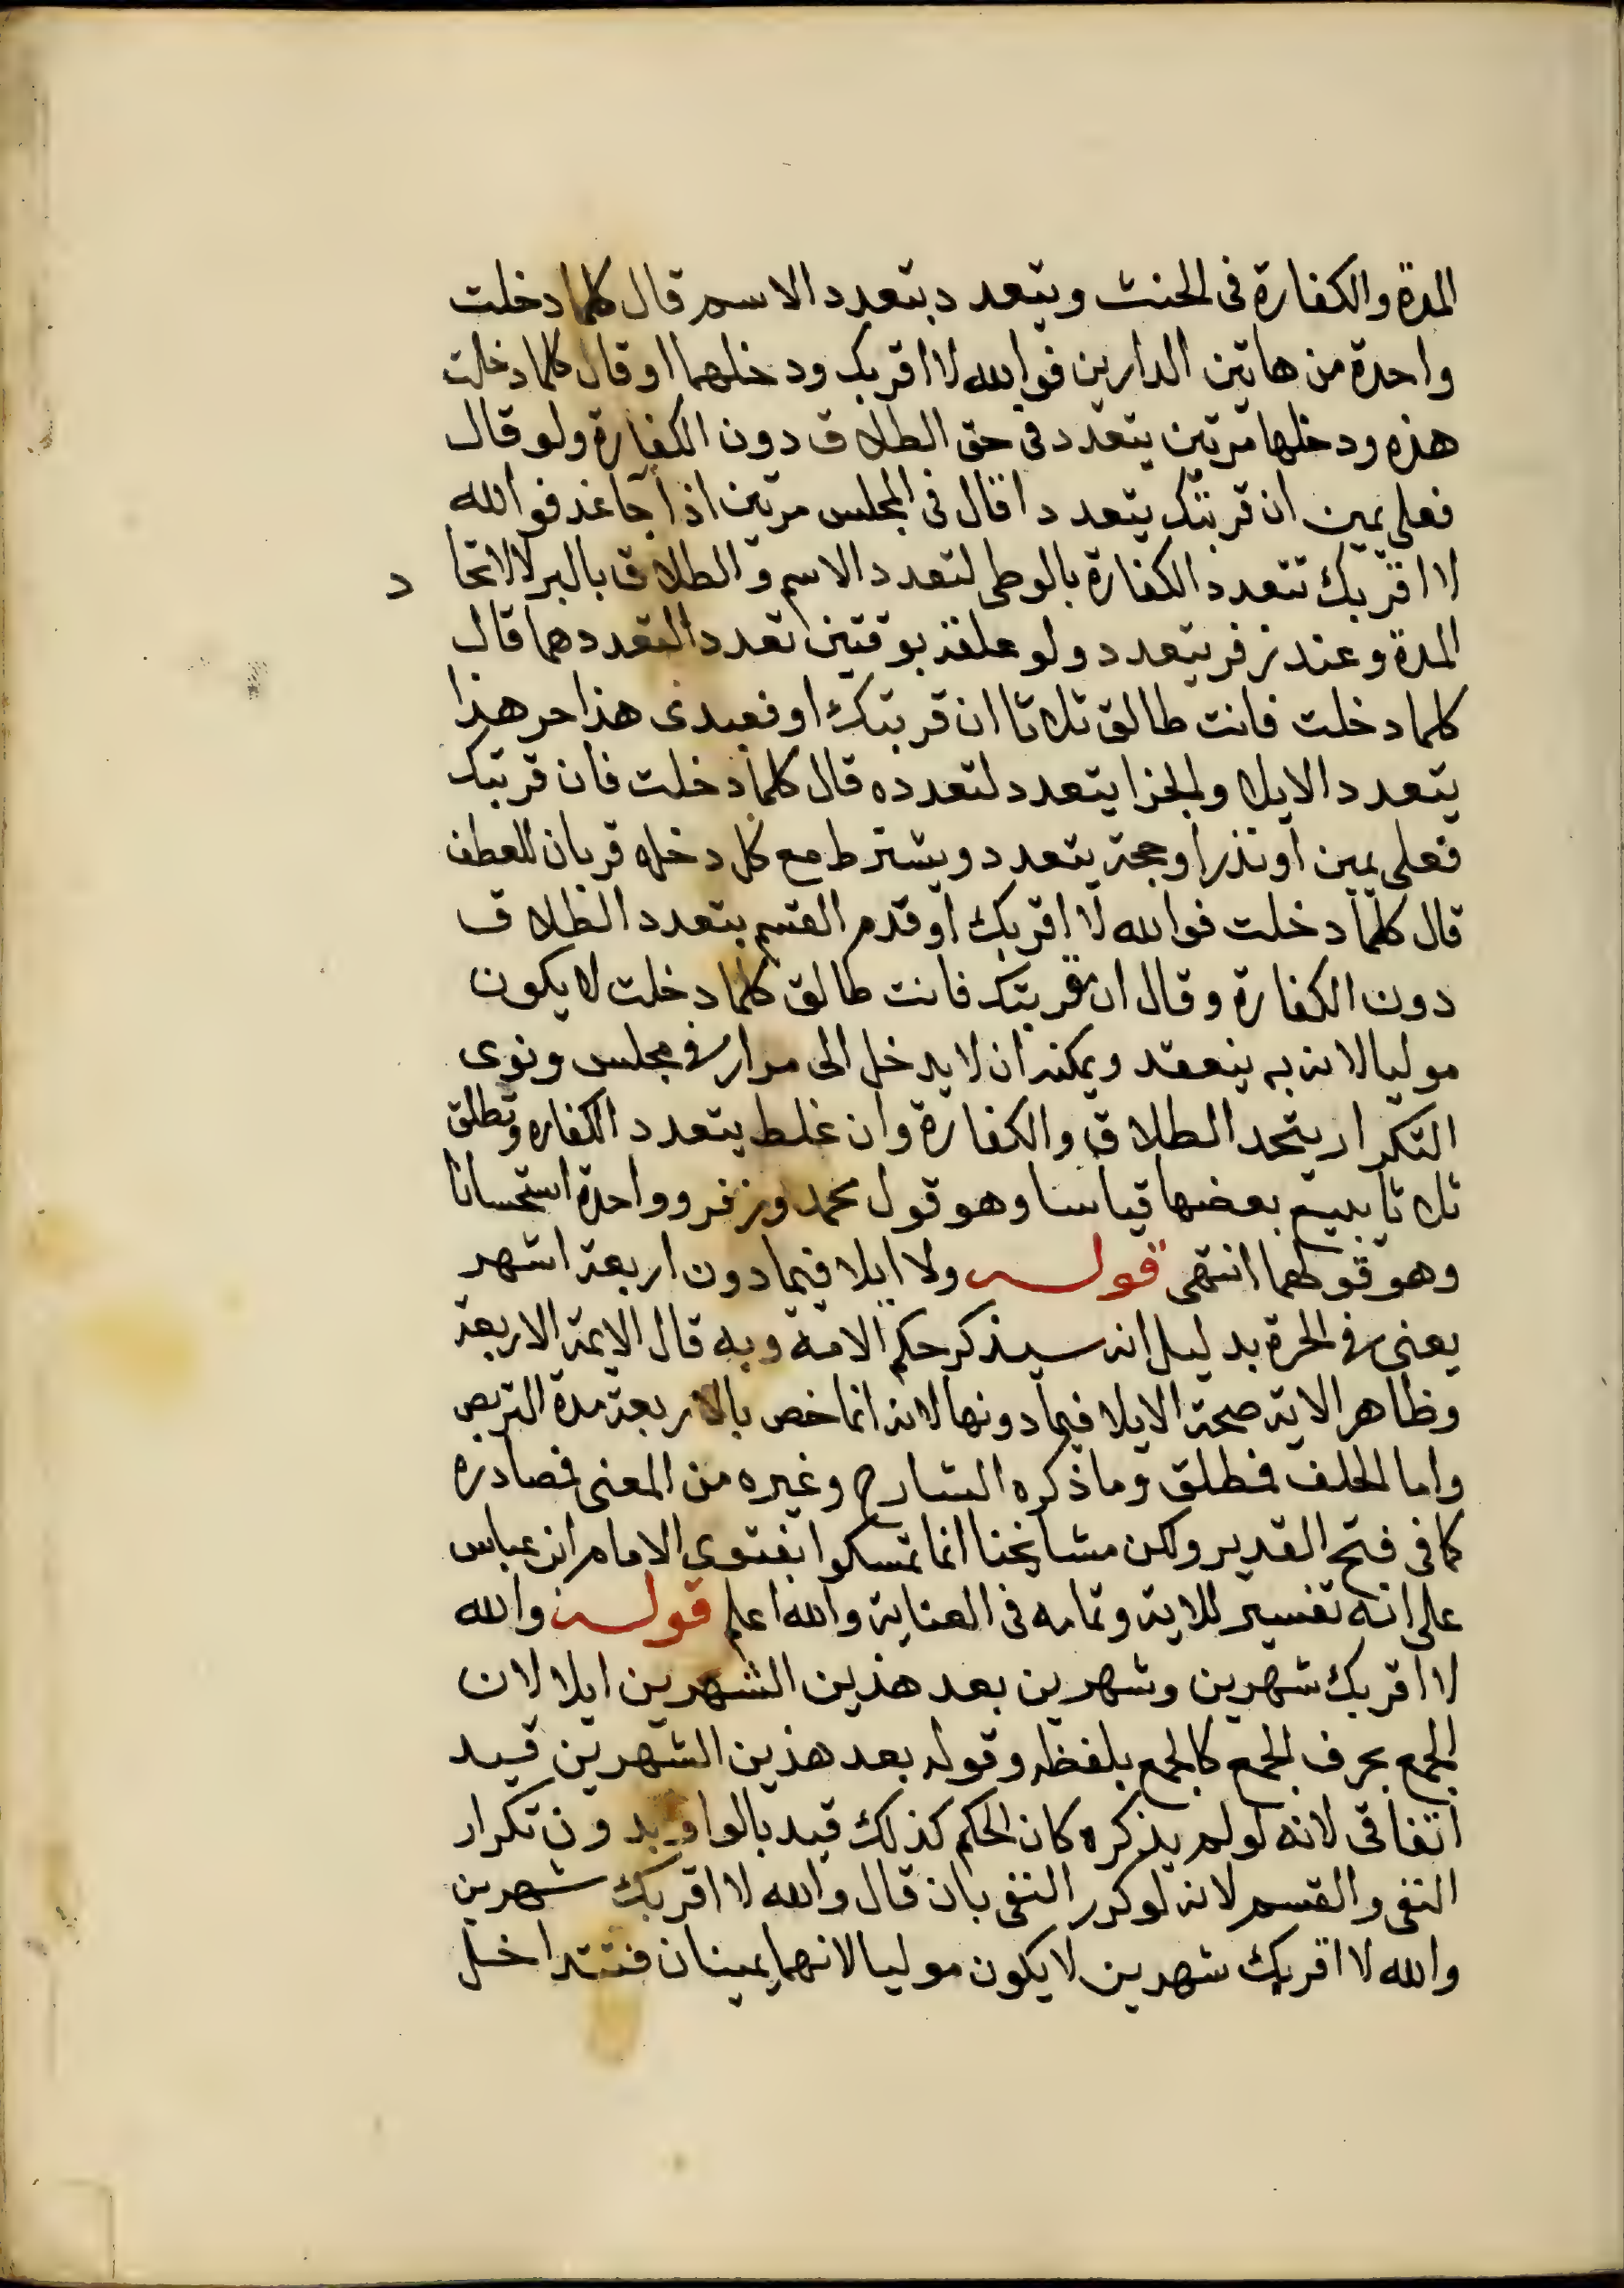 المدة والكفارة فى الحنث ويتعدد بتعدد الاسم قال كلما دخلت
واحدة من هاتين الدارين فوالله لا اقربك ودخلهما او قال كلما دخلت
هذه ودخلها مرتين يتعدد فى حق الطلاق دون الكفارة ولو قال
فعلى يمين ان قربتك يتعدد اقال فى المجلس مرتين اذا جا غد فوالله
لا اقربك تتعدد الكفارة بالوطى لتعدد الاسم والطلاق بالبر لا لاتحاد
المدة وعند زفر يتعدد ولو علقه بوقتين تعدد التعددهما قال
كلما دخلت فانت طالق ثلاثا ان قربتك او فعبدى هذا حر هذا
يتعدد الايلا والجزا يتعدد لتعدده قال كلما دخلت فان قربتك
فعلى يمين او نذر او حجة يتعدد ويشترط مع كل دخله قربان للعطف
قال كلما دخلت فوالله لا اقربك او قدم القسم يتعدد الطلاق
دون الكفارة وقال ان قربتك فانت طالق كلما دخلت لا يكون
موليا لانه به ينعقد ويمكنه ان لا يدخل الى مرار فى مجلس ونوى
التكرار يتحد الطلاق والكفارة وان غلظ يتعدد الكفاره وتطلق
ثلاثا يتبع بعضها قياسا وهو قول محمد وزفر وواحدة استحسانا
وهو قولهما انتهى قوله ولا ايلا فيما دون اربعة اشهر
يعنى فى الحرة بدليل انه سيذكر حكم الامة وبه قال الايمة الاربعة
وظاهر الاية صحة الايلا فيما دونها لانه انما خص بالاربعة مدة التربص
واما الحلف فمطلق وما ذكره الشارح وغيره من المعنى فمصادره
كما فى فتح القدير ولكن مشايخنا انما تمسكوا بفتوى الامام ابن عباس
على انه تفسير للاية وتمامه فى العناية والله اعلم قوله والله
لا اقربك شهرين وشهرين بعد هذين الشهرين ايلا لان
الجمع بحرف الجمع كالجمع بلفظه وقوله بعد هذين الشهرين قيد
اتفاقى لانه لو لم يذكره كان الحكم كذلك قيد بالواو بدون تكرار
النفى والقسم لانه لو كرر النفى بان قال والله لا اقربك شهرين
والله لا اقربك شهرين لا يكون موليا لانهما يمينان فتتداخل